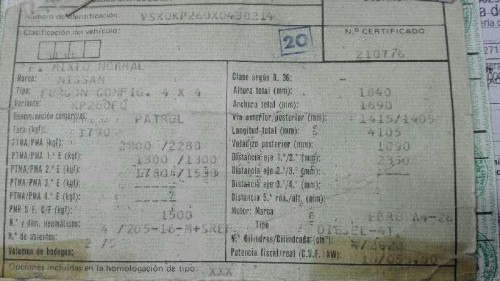 Número de identificación: VSKUKP260X0430214
Clasificación del vehículo:
20
N.º CERTIFICADO
210776
T. MIXTO NORMAL
Marca: NISSAN
Tipo: FURGON CONFIG. 4 X 4
Variante:
Denominación comercial: PATROL
Tara (kgf): 1790
PTMA/PMA (kgf): /2280
PTMA/PMA 1.º E (kgf): 1300 /1300
PTMA/PMA 2.º E (kgf):
PTMA/PMA 3.º E (kgf):
PTMA/PMA 4.º E (kgf):
PMR S F. C/F (kgf): 1500
N.º y dim. neumáticos: 4 /205-16-M+SREF
N.º de asientos:
Volumen de bodegas:
Clase según R. 36:
Altura total (mm): 1840
Anchura total (mm): 1690
Vía anterior/posterior (mm): 1415/1405
Longitud total (mm): 4105
Voladizo posterior (mm):
Distancia eje 1.º/2.º (mm): 2350
Distancia eje 2.º/3.º (mm):
Distancia eje 3.º/4.º (mm):
Distancia 5.ª rda./ult. (mm):
Motor: Marca EBRO
Tipo DIESEL-4T
N.º Cilindros/Cilindrada (cm³)
Potencia fiscal/real (C.V.F./kW)
Opciones incluidas en la homologación de tipo: XXX